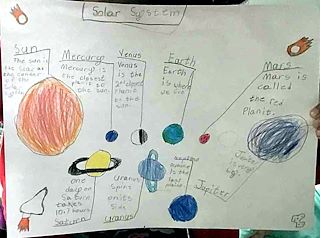 Solar System
Sun
The sun is
the star at
the center of
the
Mercury
Mercury is
the closest
planit to
the sun.
Venus
Venus
is the
2nd closest
Planit to
the sun.
Earth
Earth
is where
we live
Mars
Mars is
called
the red
Planit.
one
day on
Saturn
takes
10.7 hours
Saturn
Uranus
Spins
on its
Side
Uranus
is the
last
Jupiter is
very
big
Jupiter